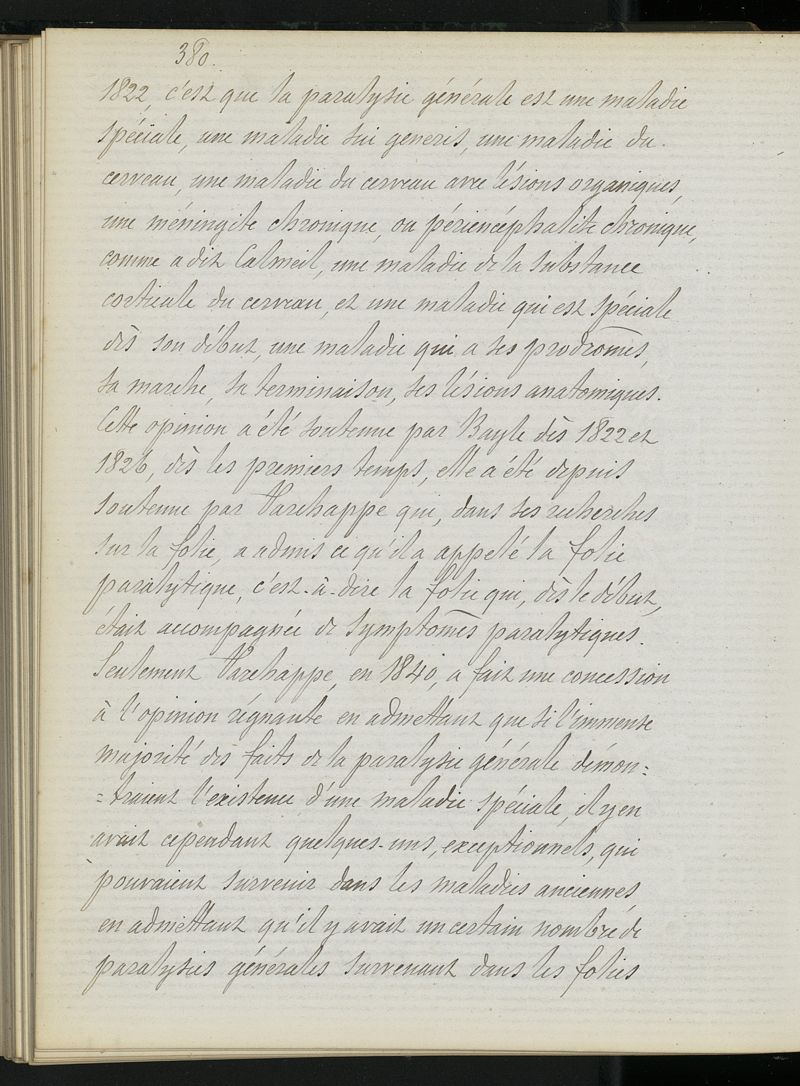 380.
1822, c'est que la paralysie générale est une maladie
spéciale, une maladie sui generis, une maladie du
cerveau, une maladie du cerveau avec lésions organiques,
une méningite chronique, ou périencéphalite chronique,
comme a dit Calmeil, une maladie de la substance
corticale du cerveau, et une maladie qui est spéciale
dès son début, une maladie qui a ses prodromes,
sa marche, sa terminaison, ses lésions anatomiques.
Cette opinion a été soutenue par Bayle dès 1822 et
1826, dès les premiers temps, elle a été depuis
soutenue par Parchappe qui, dans ses recherches
sur la folie, a admis ce qu'il a appelé la folie
paralytique, c'est-à-dire la folie qui, dès le début,
était accompagnée de symptômes paralytiques.
Seulement Parchappe, en 1840, a fait une concession
à l'opinion régnante en admettant que si l'immense
majorité des faits de la paralysie générale démon=
=traient l'existence d'une maladie spéciale, il y en
avait cependant quelques-uns, exceptionnels, qui
pouvaient survenir dans les maladies anciennes,
en admettant qu'il y avait un certain nombre de
paralysies générales survenant dans les folies